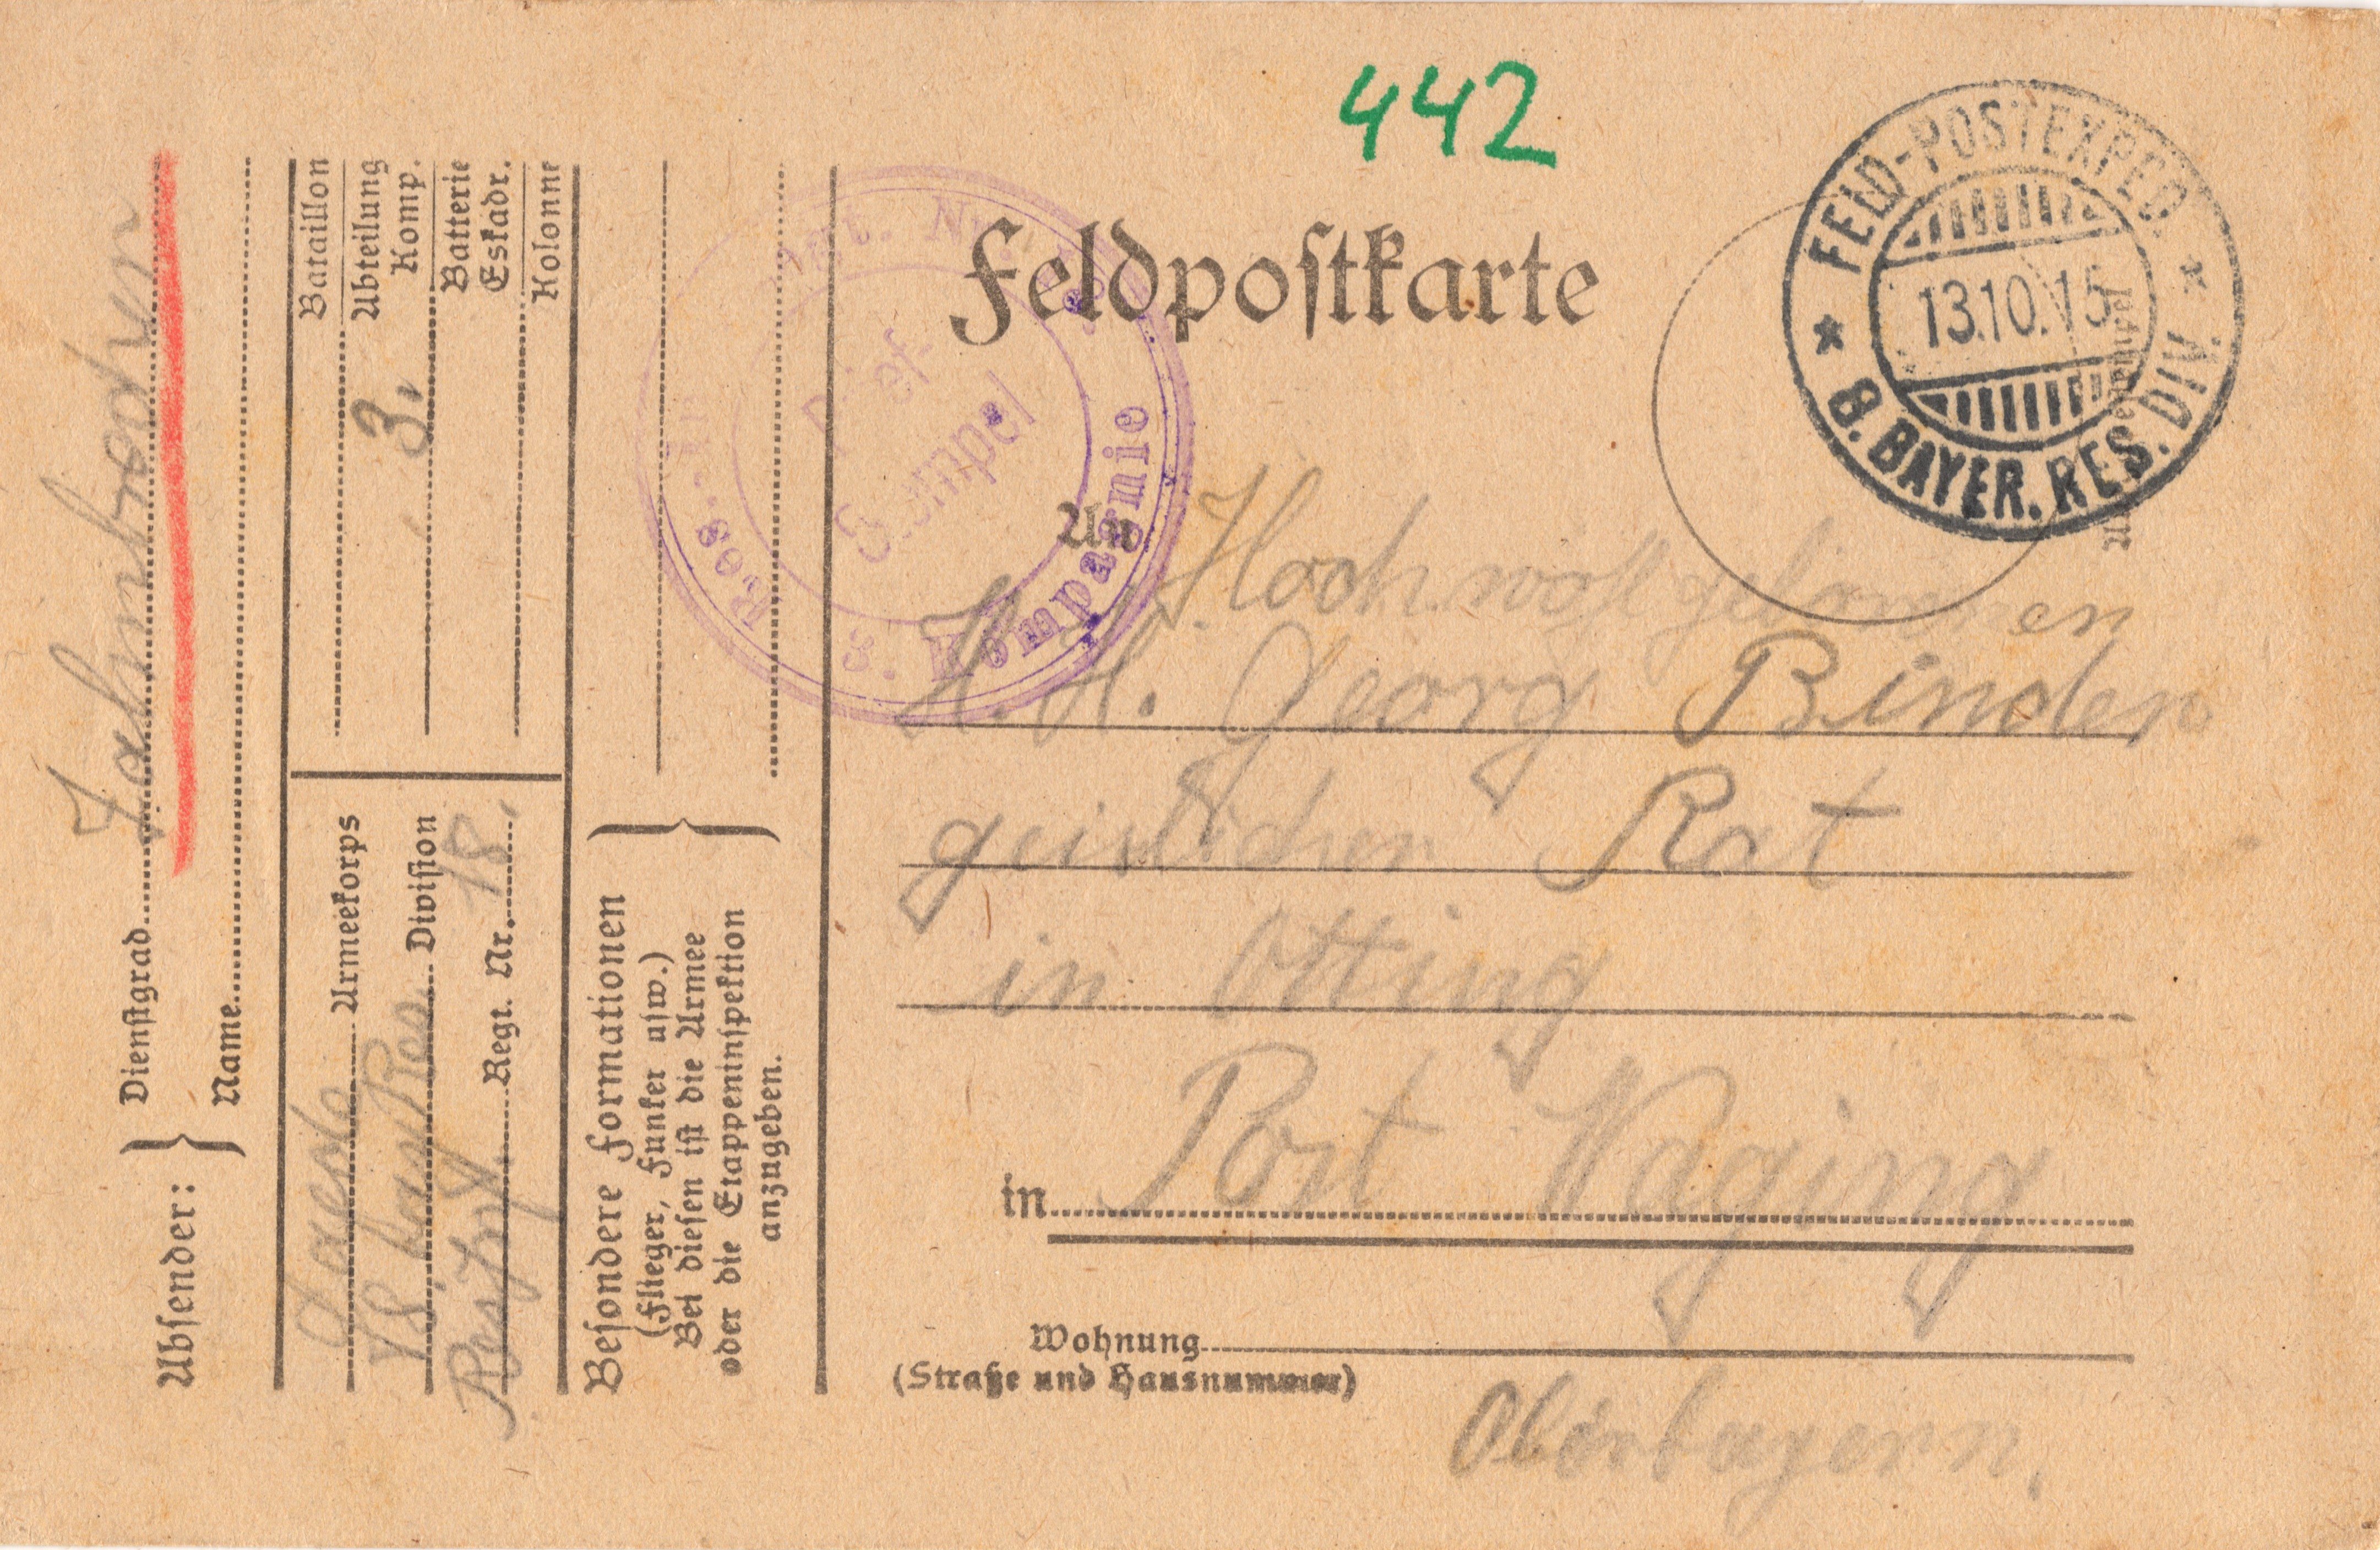 442
Feldpostkarte
FELD-POSTEXPED
13.10.15
8. BAYER. RES. DIV.
Brief-
Stempel
Res.
3. Kompagnie
An
Hochwohlgeborenen
H. H. Georg Binder
geistlicher Rat
in Otting
in Post Waging
Wohnung
(Straße und Hausnummer)
Oberbayern.
Absender:
Dienstgrad
Name
Armeekorps
18. bay Res. Division
Regt. Nr. 18,
Bataillon
Abteilung
Komp. 3.
Batterie
Eskadr.
Kolonne
Besondere Formationen
(Flieger, Funker usw.)
Bei diesen ist die Armee
oder die Etappeninspektion
anzugeben.